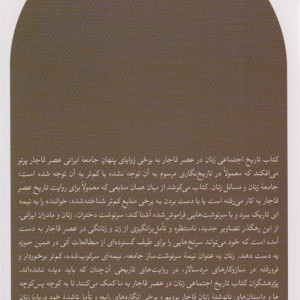 کتاب تاریخ اجتماعی زنان در عصر قاجار به برخی زوایای پنهان جامعهٔ ایرانی عصر قاجار پرتو
می‌افکند که معمولاً در تاریخ‌نگاری مرسوم به آن توجه نشده یا کم‌تر به آن توجه شده است:
جامعهٔ زنان و مسائل زنان. کتاب می‌کوشد از میان همان منابعی که معمولاً برای روایت تاریخ عصر
قاجار به کار می‌رفته است یا با دست بردن به برخی منابع کم‌تر شناخته‌شده، خواننده را به نیمه
ای تاریک ببرد و با سرنوشت‌هایی فراموش‌شده آشنا کند، سرنوشت دختران، زنان و مادران ایرانی.
از این رهگذر تصاویر جدید، نامنتظره و تأمل‌برانگیزی از زن و زنانگی در عصر قاجار به دست
آمده است که خود می‌تواند سرنخ‌هایی را برای طیف گسترده‌ای از مطالعات آتی در همین حوزه
به دست دهد. زنان، به عنوان نیمهٔ سرنوشت‌ساز جامعه، نیمه‌ای سرکوب‌شده، کم‌تر برخوردار و
فرورفته در سازوکارهای مردسالار، در روایت‌های تاریخی آن‌چنان که باید دیده نشده‌اند.
پژوهشگران کتاب تاریخ اجتماعی زنان در عصر قاجار به ما کمک می‌کنند تا به کوچه پس‌کوچه
ها و دهلیزهای نانوشتهٔ زنان قاجار برویم و برخی انگاره‌های رایج و تأمل‌ناشدهٔ خود دربارهٔ زنان